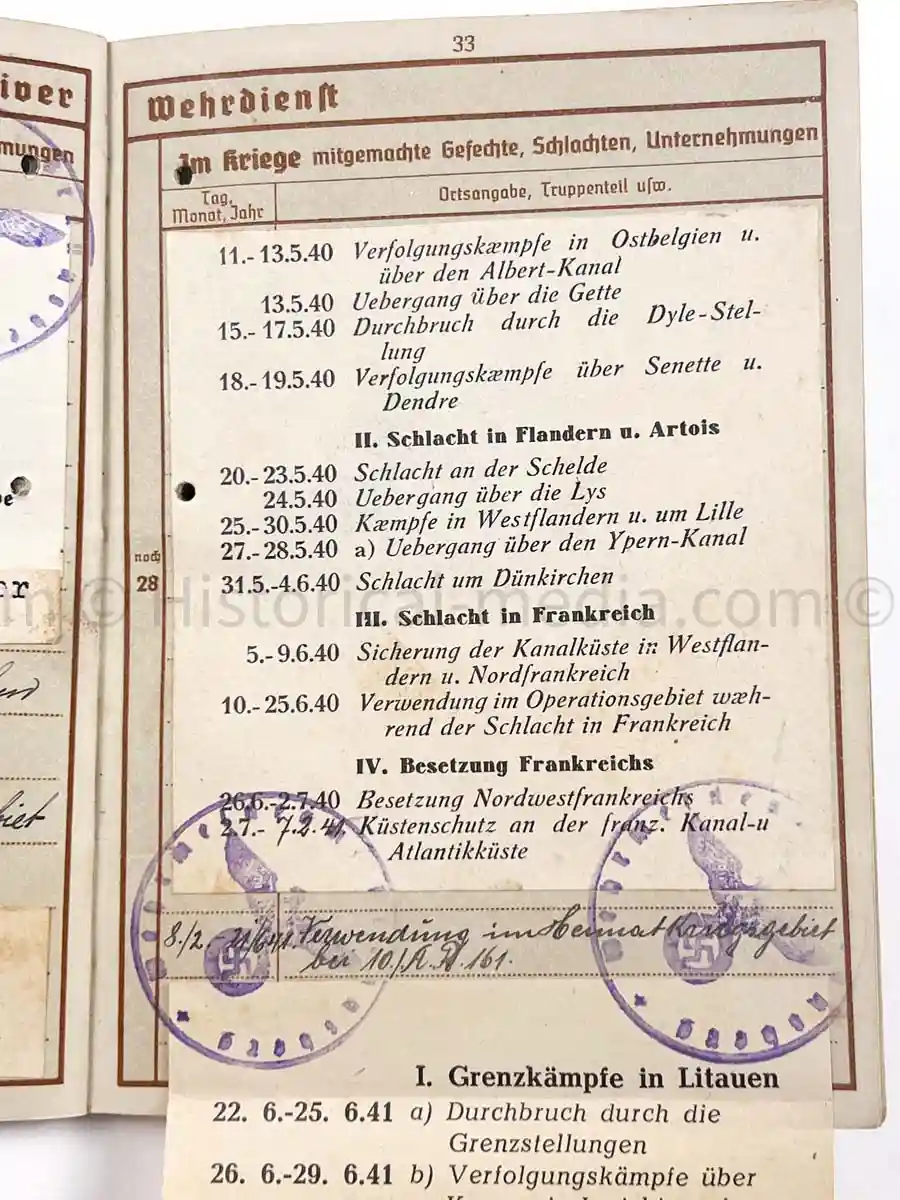 iver
mungen
33
Wehrdienst
Im Kriege mitgemachte Gefechte, Schlachten, Unternehmungen
Tag, Monat, Jahr
Ortsangabe, Truppenteil usw.
11.-13.5.40 Verfolgungskæmpfe in Ostbelgien u.
über den Albert-Kanal
13.5.40 Uebergang über die Gette
15.-17.5.40 Durchbruch durch die Dyle-Stel-
lung
18.-19.5.40 Verfolgungskæmpfe über Senette u.
Dendre
II. Schlacht in Flandern u. Artois
20.-23.5.40 Schlacht an der Schelde
24.5.40 Uebergang über die Lys
25.-30.5.40 Kæmpfe in Westflandern u. um Lille
27.-28.5.40 a) Uebergang über den Ypern-Kanal
noch
28
31.5.-4.6.40 Schlacht um Dünkirchen
© Historical-media.com ©
III. Schlacht in Frankreich
5.-9.6.40 Sicherung der Kanalküste in Westflan-
dern u. Nordfrankreich
10.-25.6.40 Verwendung im Operationsgebiet wæh-
rend der Schlacht in Frankreich
IV. Besetzung Frankreichs
26.6.-2.7.40 Besetzung Nordwestfrankreichs
2.7.- 7.2.41. Küstenschutz an der franz. Kanal-u
Atlantikküste
8./2.- Verwendung im Heimatkriegsgebiet
bei 10./A.R. 161.
I. Grenzkämpfe in Litauen
22. 6.-25. 6.41 a) Durchbruch durch die
Grenzstellungen
26. 6.-29. 6.41 b) Verfolgungskämpfe über